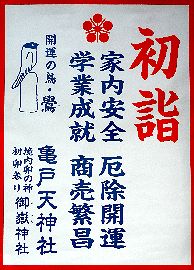 初詣
家内安全 厄除開運
学業成就 商売繁昌
開運の鳥・鷽
亀戸天神社
境内卯の神
初卯参り
御嶽神社